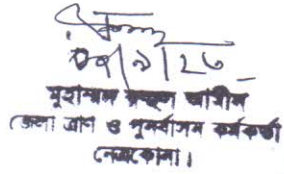 ০৪/৯/২৩
মুহাম্মদ রুহুল আমীন
জেলা ত্রাণ ও পুনর্বাসন কর্মকর্তা
নেত্রকোনা।